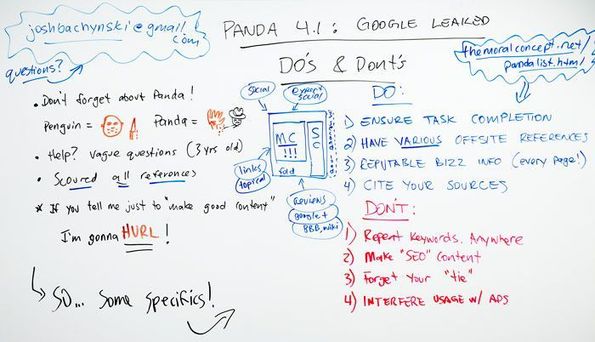 joshbachynski@gmail.
com
questions?
PANDA 4.1: GOOGLE LEAKED
DO's & Dont's
themoralconcept.net/
pandalist.html
• Don't forget about Panda!
Penguin = Panda =
• Help? vague questions (3 yrs old)
• Scoured all references
* If you tell me just to "make good content"
I'm gonna HURL!
SO... Some Specifics!
social
expert
social
MC
!!!
SC
fold
links
topical
reviews
google+
BBB, wiki
DO:
1) ENSURE TASK COMPLETION
2) HAVE VARIOUS OFFSITE REFERENCES
3) REPUTABLE BIZZ INFO (every page!)
4) CITE YOUR SOURCES
DON'T:
1) Repeat Keywords. Anywhere
2) Make "SEO" Content
3) Forget Your "tie"
4) INTERFERE USAGE W/ ADS